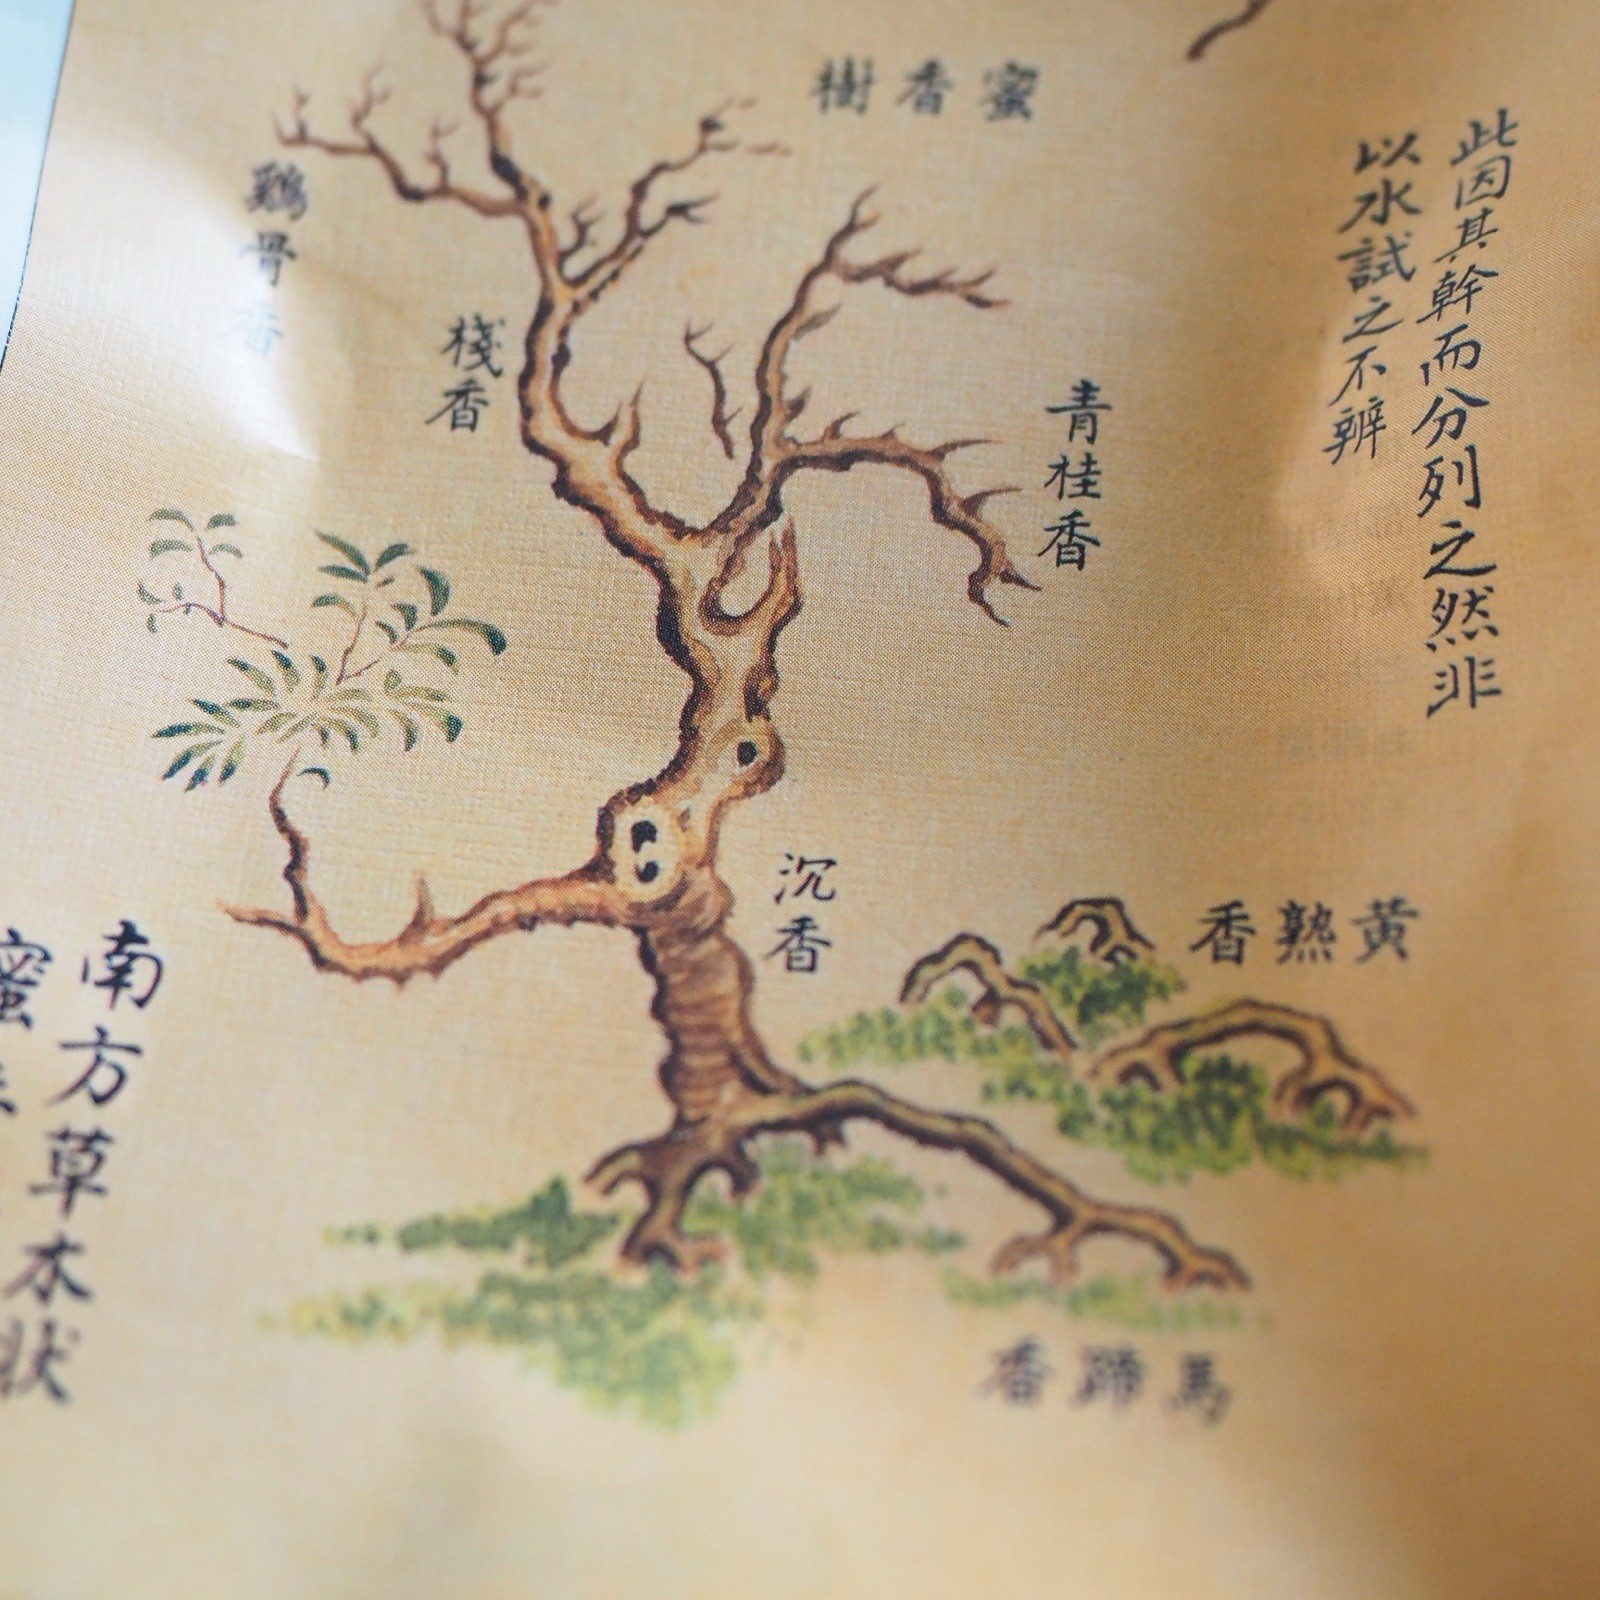 蜜香樹
此因其幹而分列之然非
以水試之不辨
鷄骨香
棧香
青桂香
沉香
黄熟香
馬蹄香
南方草木狀
蜜